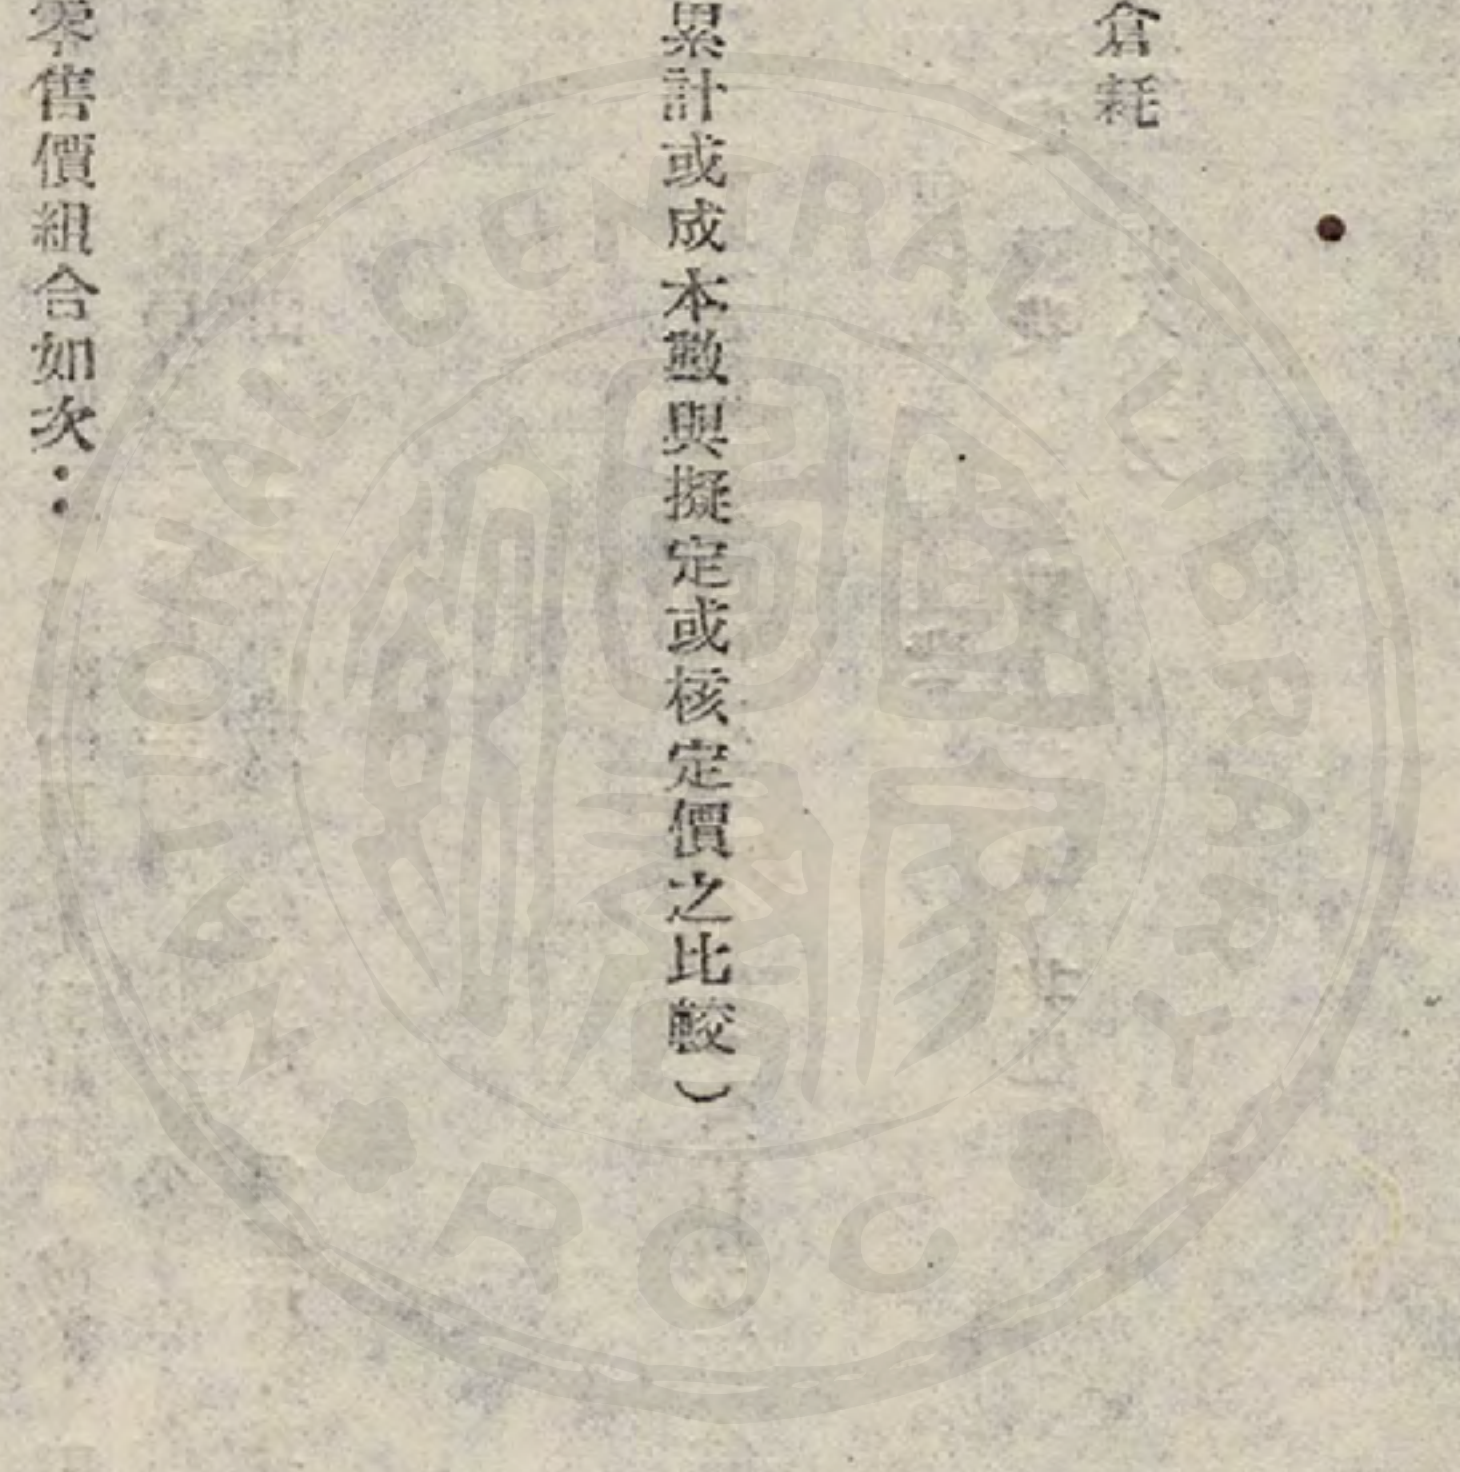 倉耗
累計或成本數與擬定或核定價之比較）
零售價組合如次：
NATIONAL CENTRAL LIBRARY
ROC
國家圖書館